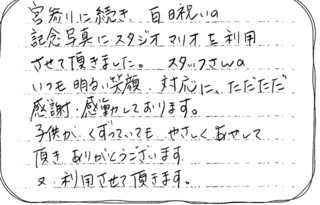 宮参りに続き、百日祝いの
記念写真にスタジオマリオを利用
させて頂きました。スタッフさんの
いつも明るい笑顔・対応に、ただただ
感謝・感動しております。
子供が、くずっていても やさしくあやして
頂き ありがとうございます
又、利用させて頂きます。